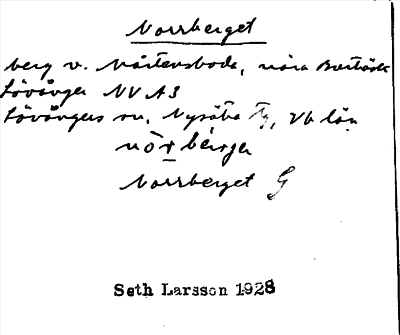 Norrberget
berg v. Mårtensboda, nära Bortäsk
Lövånger NV A3
Lövångers sn, Nysätra tg, Vb län
Norrberget G
Seth Larsson 1928